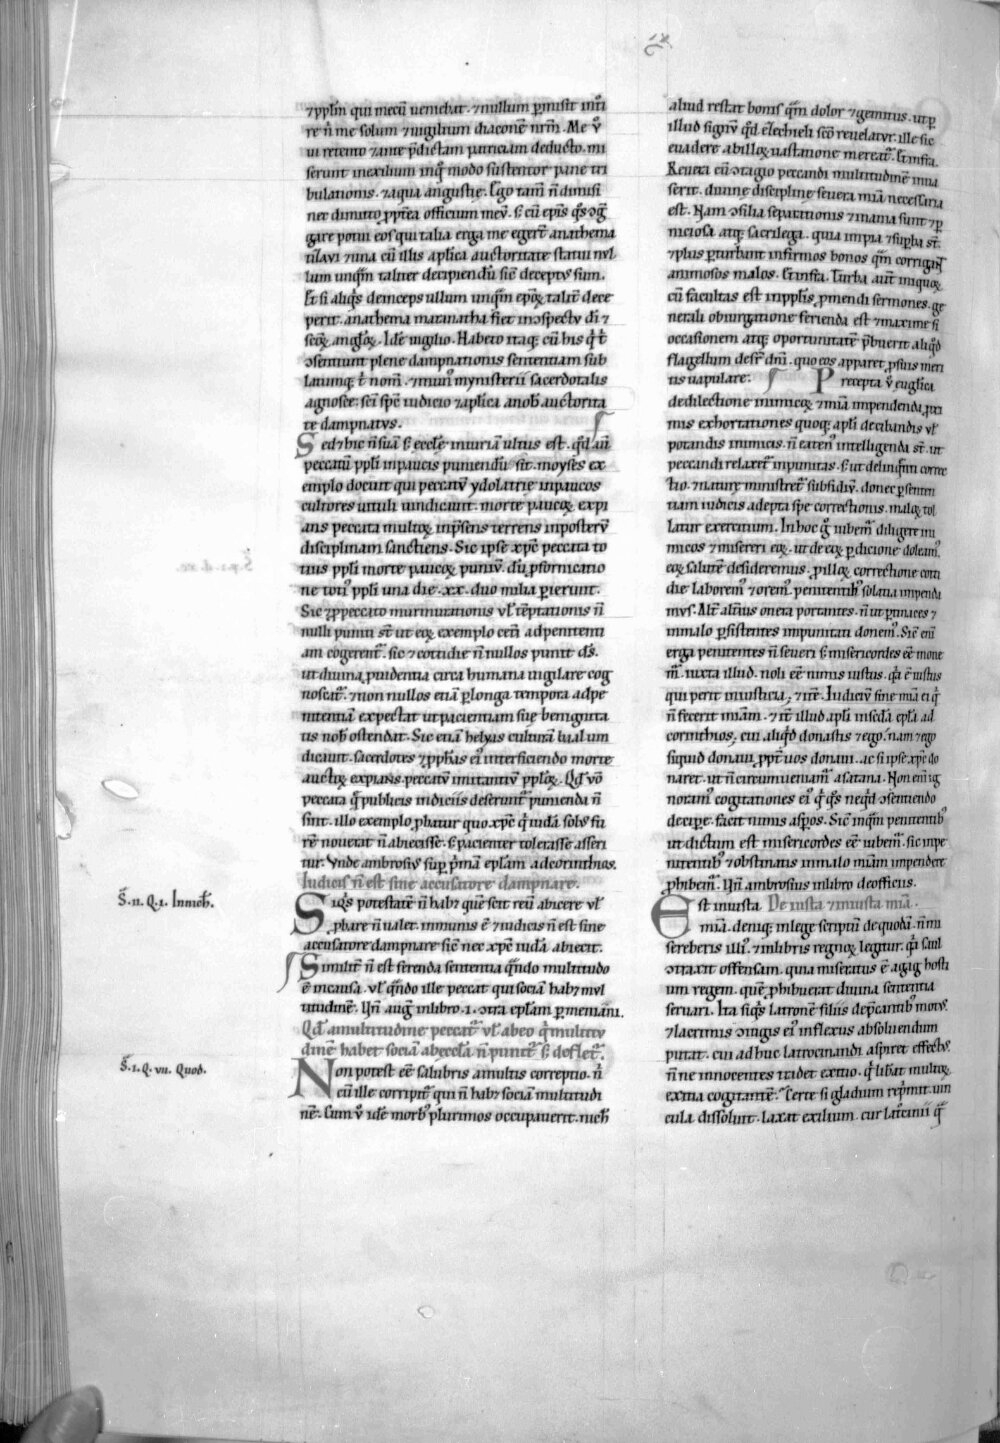 ⁊pplm̄ qui mecū ueniebat. ⁊nullum p̄misit intͥ
re n̄ me solum ⁊uigilium diaconē nr̄m. Me ṽ
ui retento ⁊ante p̄dictam patriciam deducto. mi
serunt inexilium inq̊ modo sustentor pane tri
bulationis. ⁊aqua angustie. Ego tam̄ n̄ dimisi
nec dimitto ꝓpt̄ea officium meū. s; cū ep̄is q̊s ꝯg̃
gare potui eos qui talia erga me eger̄t anathema
tizaui ⁊una cū illis aplīca auctoritate statui nul
lum unq̄m taliter decipiendū sic̄ deceptus sum.
Et si aliq̊s deinceps ullum unq̄m ep̄oꝝ talit̄ dece
perit. anathema maranatha fiet inꝯspectu dī ⁊
sc̄oꝝ angl̄oꝝ. Idē uigilio. Habeto itaq; cū his q̇ t̄
ꝯsentiunt plene dampnationis sententiam sub
latumq; t̄ nom̄. ⁊mun᷒ mynisterii sacerdotalis
agnosce. sc̄i sp̄c iudicio ⁊aplīca anob̄ auctorita
te dampnatus.
Sed ⁊hic n̄ suā s; eccl̄e iniuriā ultus est. q̄d aūt
peccatū ppl̄i inpaucis puniendū sit. moyses ex
emplo docuit qui peccatū ydolatrie inpaucos
cultores uituli uindicauit. morte paucoꝝ expi
ans peccata multoꝝ inp̄sens terrens inposterū
disciplinam sanctiens. Sic ipse xp̄c peccata to
tius ppl̄i morte paucoꝝ puniū. dū ꝓ fornicatio
ne toti᷒ ppl̄i una die .xx. duo milia ꝑierunt.
Sic ⁊ꝓ peccato murmurationis ul̄ tēptationis n̄
nulli puniti st̄ ut eoꝝ exemplo cet̄i ad penitenti
am cogerent᷑. sic ⁊ cottidie n̄ nullos punit d̄s.
ut diuina ꝓuidentia circa humana uigilare cog
noscat᷑. ⁊non nullos etiā ꝑ longa tempora ad pe
nitentiā expectat ut pacientiam sue benignita
tis nob̄ ostendat. Sic etiā helyas culturā baal um
dicauit. sacerdotes ⁊ꝓphas ei᷒ interficiendo morte
auctoꝝ expians peccatū imitantiū ppl̄oꝝ. Q̄d ṽo
peccata q̄ publicis indiciis deserunt᷑ punienda n̄
sint. illo exemplo ꝓbatur quo xp̄c q̇ iudā solus fu
rē nouerat n̄ abiecisse. s; pacienter tolerasse asseri
tur. Vnde ambrosi᷒ suꝑ p̄mā ep̄lam ad corinthios.
Iudicis n̄ est sine accusatore dampnare.
Siq̊s potestatē n̄ hab; quē scit reū abicere ul̄
ꝓbare n̄ ualet. inmunis ē ⁊iudicis n̄ est sine
accusatore dampnare sic̄ nec xp̄c iudā abiecit.
Similit̄ n̄ est ferenda sententia q̄ndo multitudo
ē in causa. ul̄ q̄ndo ille peccat qui sociā hab; mul
titudinē. Vn̄ aug̃ in libro .i. ꝯtra ep̄lam parmeniani.
Q̄d a multitudine peccat᷑ ul̄ ab eo q̇ multitu
dinē habet sociā ab eccl̄a n̄ punit᷑ s; deflet᷑.
Non potest eē salubris a multis correptio. n̄
cū ille corripit᷑ qui n̄ hab; sociā multitudi
nē. Cum ṽ idē morb᷒ plurimos occupauerit. nich̄
aliud restat bonis q̄m dolor ⁊gemitus. ut ꝑ
illud signū q̄d ezechieli sc̄o reuelatur. ille sic
euadere ab illoꝝ uastatione mereat᷑. Et infra.
Reuera cū ꝯtagio peccandi multitudinē inua
serit. diuine discipline seuera mīa necessaria
est. Nam ꝯsilia separationis ⁊inania sunt ⁊ ꝑ
niciosa atq; sacrilega. quia impia ⁊suꝑba st̄.
⁊plus ꝑturbant infirmos bonos q̄m corrigāt
animosos malos. Et infra. Turba aut̄ iniquoꝝ
cū facultas est in ppl̄is ꝓmendi sermones. ge
nerali obiurgatione ferienda est ⁊maxime si
occasionem atq; oportunitatē p̄buerit aliq̊d
flagellum desr̄ dn̄i. quo eos apparet ꝓ suis meri
tis uapulare. Precepta ṽ eug̃lica
de dilectione inimicoꝝ ⁊mīa impendenda ꝓxi
mis exhortationes quoq; apl̄i de cibandis ul̄
potandis inimicis. n̄ eaten᷒ intelligenda st̄. ut
peccandi relaxet᷑ inpunitas. s; ut delinq̄nti correc
tio. ⁊nature ministret᷑ subsidiū. donec p̄senten
tiam iudicis adepta spe correctionis. maloꝝ tol
latur exercitium. In hoc g̊ iubem᷑ diligere ini
micos ⁊misereri eoꝝ. ut de eoꝝ ꝑdicione doleam᷒.
eoꝝ salutē desideremus. ꝓ illoꝝ correctione coti
die laborem᷒ ⁊orem᷒. penitentib᷒ solatia impenda
mus. Alt̄ alti᷒us onera portantes. n̄ ut ꝑtinaces ⁊
in malo ꝑsistentes impunitati donem᷒. Sic̄ eni
erga penitentes n̄ seueri s; misericordes eē mone
m᷑. iuxta illud. noli eē nimis iustus. q̇a ē iustus
qui perit in iusticia. ⁊ itē. Iudiciū sine mīa ei q̇
n̄ fecerit mīam. ⁊ it̄ illud apl̄i in sc̄da ep̄la ad
corinthios. cui aliq̊d donastis ⁊ego. nam ⁊ego
siquid donaui. ꝓpt᷑ uos donaui. ac si ipse xp̄c do
naret. ut n̄ circumueniam᷑ a satana. Non enī ig
noram᷒ cogitationes ei᷒ q̇ q̊s neq̊d ꝯsentiendo
decipe. facit nimis asp̄os. Sic̄ inq̄m penitentib᷒
ut dictum est misericordes eē iubem᷑. sic inpe
nitentib᷒ ⁊obstinatis in malo mīam impendere
ꝓhibem᷑. Vn̄ ambrosius in libro de officiis.
De iusta ⁊iniusta mīa.
Est iniusta
mīa. deniq; in lege scriptū de quodā. n̄ mi
sereberis illi᷒. ⁊in libris regnoꝝ legitur. q̇a saul
ꝯtraxit offensam. quia miseratus ē agag hosti
um regem. quē ꝓhibuerat diuina sententia
seruari. Ita siq̊s latronē filiis dep̄cantib᷒ motus.
⁊lacrimis ꝯiugis ei᷒ inflexus absoluendum
putat. cui adhuc latrocinandi aspiret effectus.
n̄ne innocentes tradet exitio. q̇ libat multoꝝ
exitia cogitantē. Certe si gladium rep̄mit. uin
cula dissoluit. laxat exilium. cur latcinii q̄
S̄. 11. Q. 1. Innich.
S̄. 1. Q. vii. Quod.